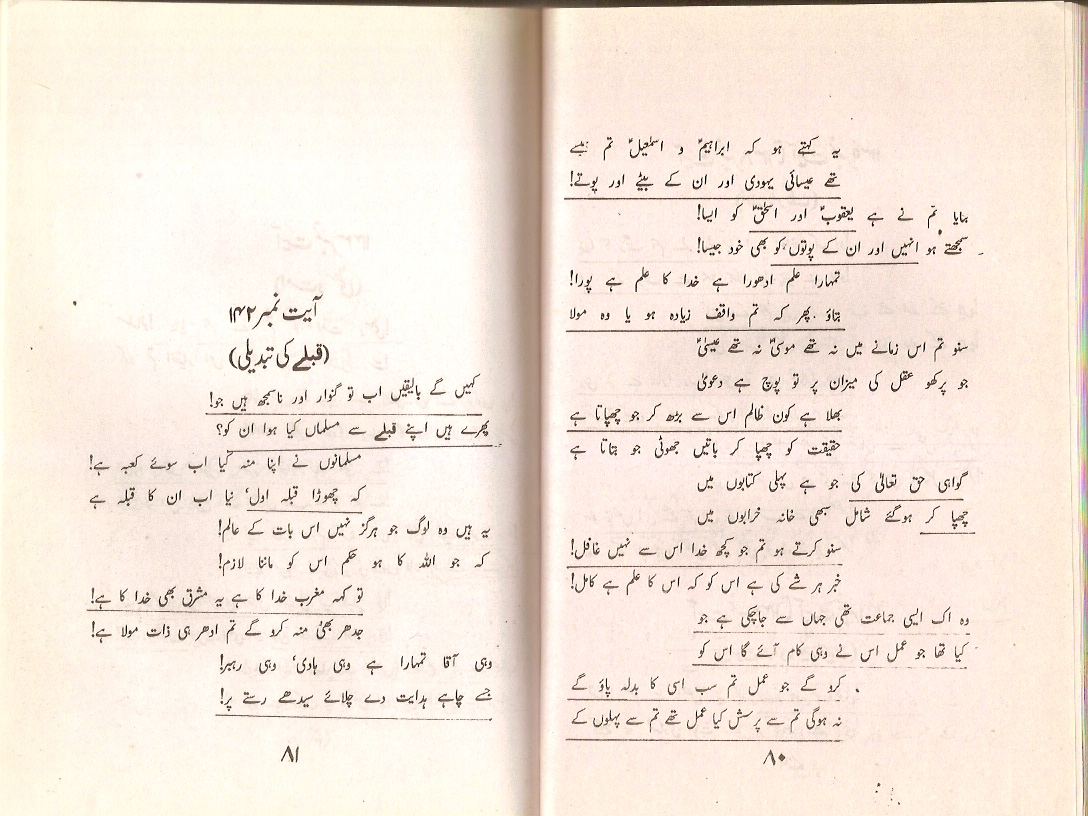 یہ کہتے ہو کہ ابراہیمؑ و اسمٰعیلؑ تم جیسے
تھے عیسائی یہودی اور ان کے بیٹے اور پوتے!
بنایا تم نے ہے یعقوبؑ اور اسحٰقؑ کو ایسا!
سمجھتے ہو انہیں اور ان کے پوتوں کو بھی خود جیسا!
تمہارا علم ادھورا ہے خدا کا علم ہے پورا!
بتاؤ پھر کہ تم واقف زیادہ ہو یا وہ مولا
سنو تم اس زمانے میں نہ تھے موسیٰؑ نہ تھے عیسیٰؑ
جو پرکھو عقل کی میزان پر تو پوچ ہے دعویٰ
بھلا ہے کون ظالم اس سے بڑھ کر جو چھپاتا ہے
حقیقت کو چھپا کر باتیں جھوٹی جو بتاتا ہے
گواہی حق تعالیٰ کی جو ہے پہلی کتابوں میں
چھپا کر ہوگئے شامل سبھی خانہ خرابوں میں
سنو کرتے ہو تم جو کچھ خدا اس سے نہیں غافل!
خبر ہر شے کی ہے اس کو کہ اس کا علم ہے کامل!
وہ اک ایسی جماعت تھی جہاں سے جاچکی ہے جو
کیا تھا جو عمل اس نے وہی کام آئے گا اس کو
کرو گے جو عمل تم سب اسی کا بدلہ پاؤ گے
نہ ہوگی تم سے پرسش کیا عمل تھے تم سے پہلوں کے
۸۰
آیت نمبر ۱۴۲
(قبلے کی تبدیلی)
کہیں گے بالیقیں اب تو گنوار اور ناسمجھ ہیں جو!
پھرے ہیں اپنے قبلے سے مسلماں کیا ہوا ان کو؟
مسلمانوں نے اپنا منہ کیا اب سوئے کعبہ ہے!
کہ چھوڑا قبلہ اول، نیا اب ان کا قبلہ ہے
یہ ہیں وہ لوگ جو ہرگز نہیں اس بات کے عالم!
کہ جو اللہ کا ہو حکم اس کو ماننا لازم!
تو کہہ مغرب خدا کا ہے یہ مشرق بھی خدا کا ہے!
جدھر بھی منہ کرو گے تم ادھر ہی ذات مولا ہے!
وہی آقا تمہارا ہے وہی ہادی، وہی رہبر!
جسے چاہے ہدایت دے چلائے سیدھے رستے پر!
۸۱